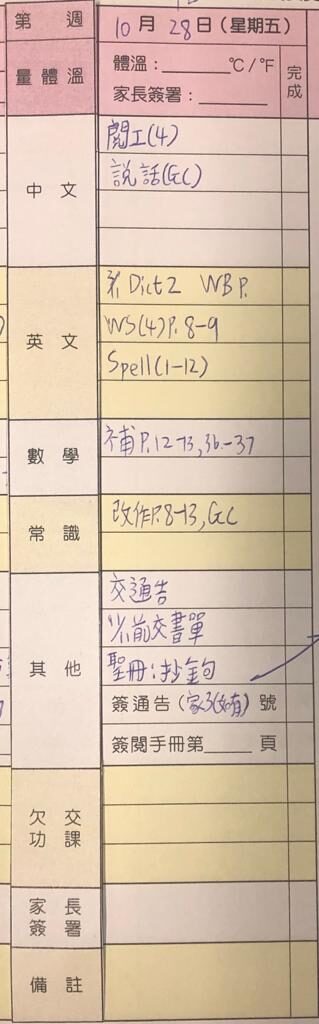 第 週
10月28日(星期五)
量體溫
體溫：______°C/°F
家長簽署：______
完成
中文
閱工(4)
説話(GC)
英文
Dict 2 WB P.
WS(4)P.8-9
Spell(1-12)
數學
補P.12-13,36-37
常識
改作P.8-13,GC
其他
交通告
前交書單
聖冊:抄金句
簽通告(家3(如有)號
簽閱手冊第____頁
欠交功課
家長簽署
備註